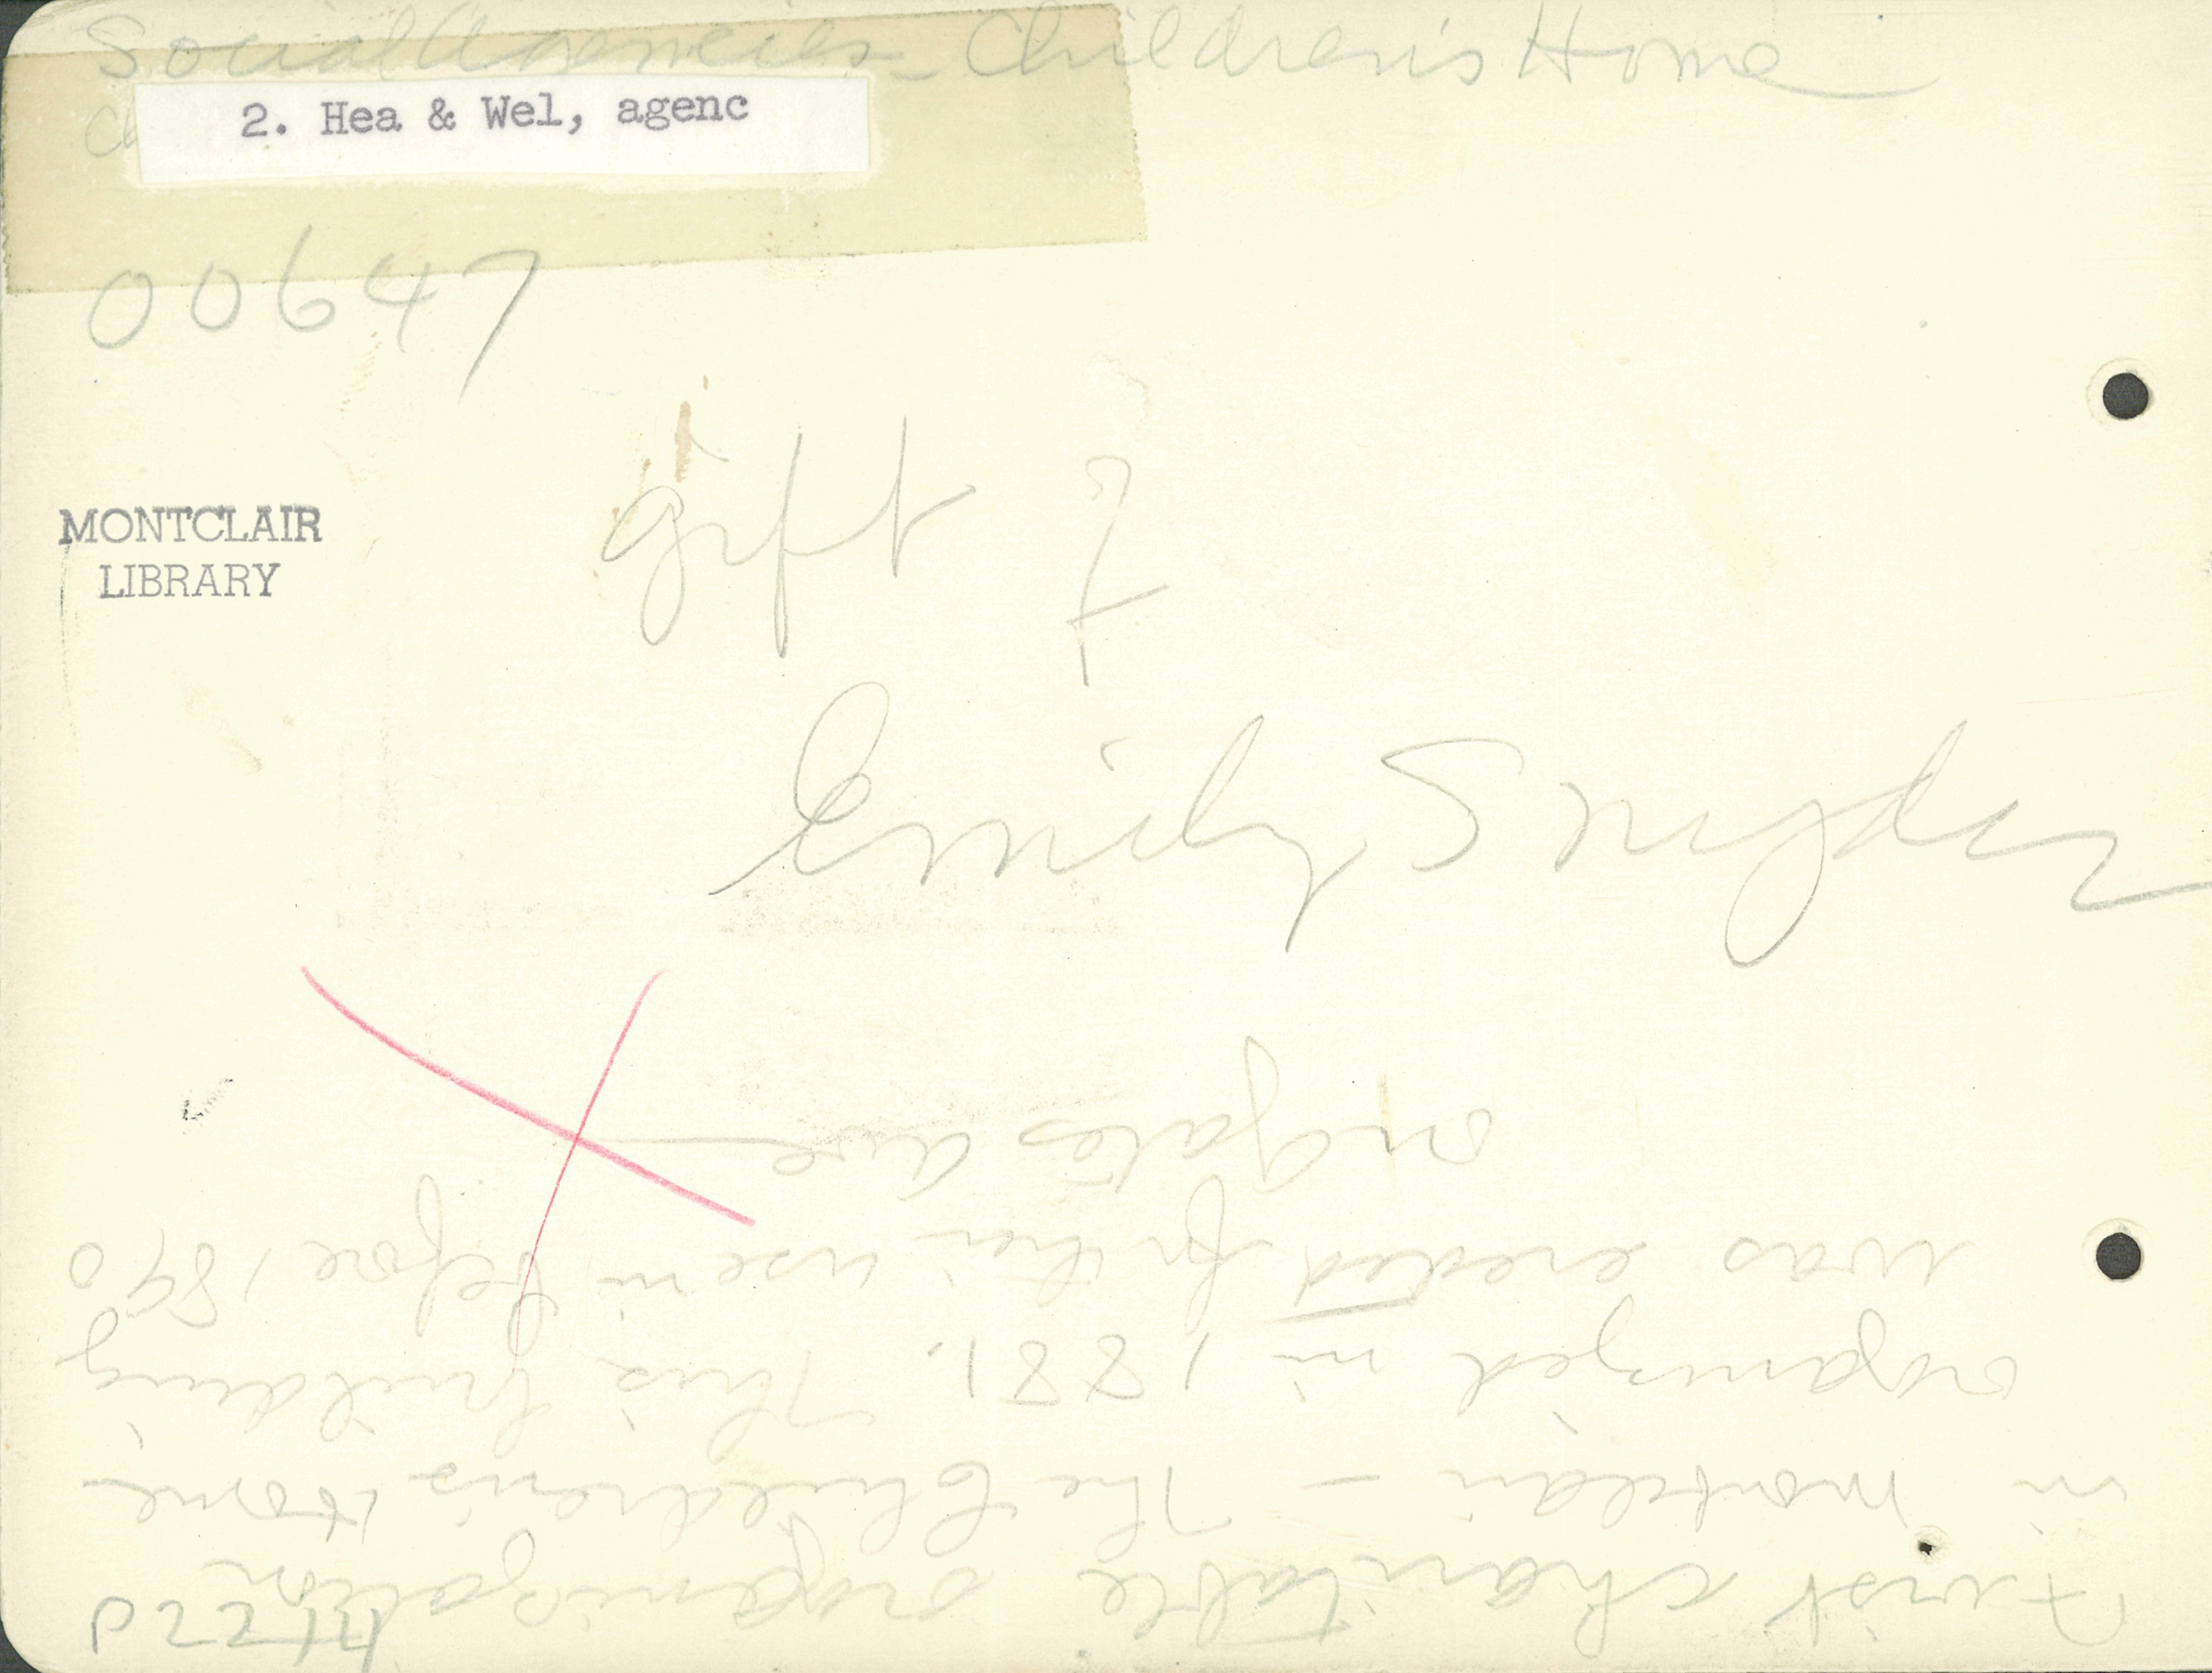 Social Agencies - Children's Home
2. Hea & Wel, agenc
00647
MONTCLAIR
LIBRARY
gift of
Emily Snyder
First charitable organization
in Montclair - The Children's Home
organized in 1881. This building
was erected for their use in before 1890
on Gates ave